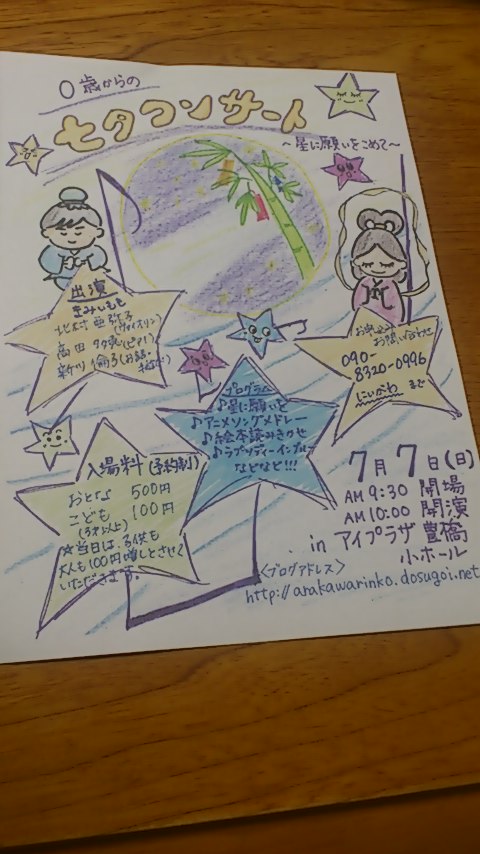 0歳からの
七夕コンサート
～星に願いをこめて～
出演
きみいもも
北村 亜弥子
(ヴァイオリン)
高田 (ピアノ)
新川 (お話・
お申し込み
お問い合わせ
090-
8320-0996
にいかわ まで
プログラム
♪星に願いを
♪アニメソングメドレー
♪絵本読みきかせ
♪ラプソディーインブルー
などなど!!!
入場料(予約制)
おとな 500円
こども 100円
(3才以上)
☆当日は、子供も
大人も100円増しとさせて
いただきます。
7月7日(日)
AM 9:30 開場
AM 10:00 開演
in アイプラザ豊橋
小ホール
<ブログアドレス>
http://arakawarinko.dosugoi.net